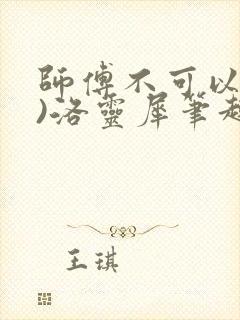 師傅不可以
)洛靈犀筆趣
王琪